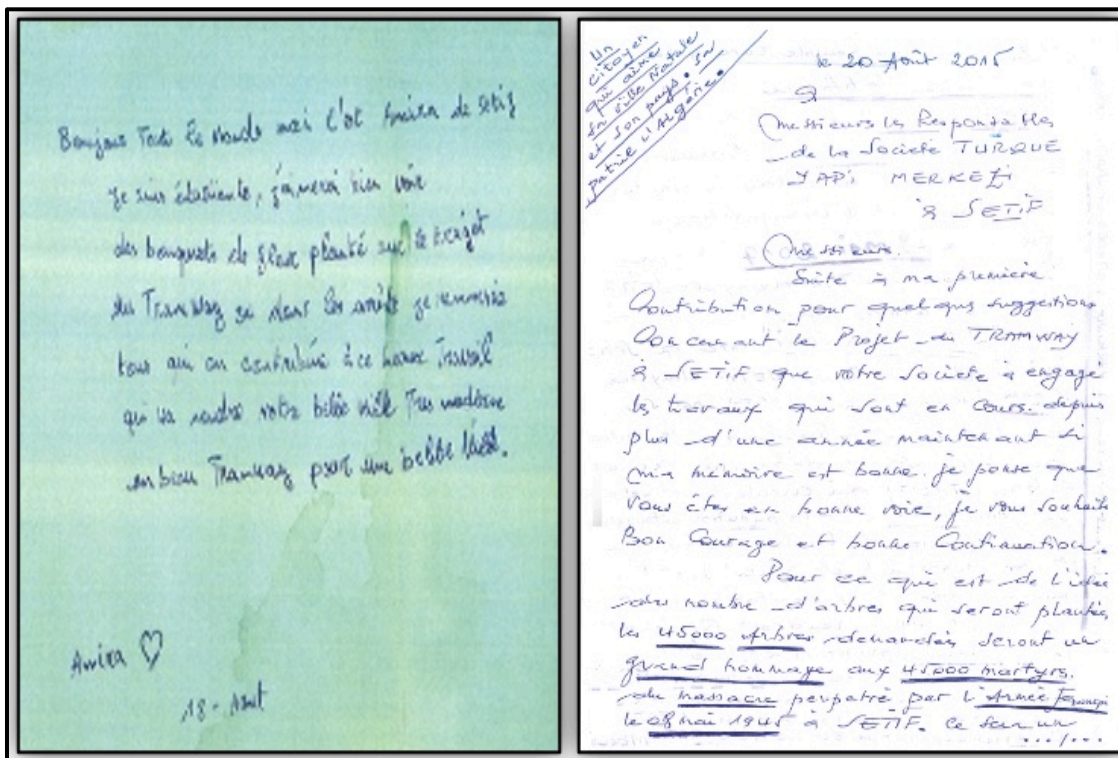 Bonjour Tout le Monde moi c'est Amira de setif
Je suis étudiente, j'aimerai bien voir
des bouquets de fleur planté sur le trajet
du TramWay ou dans les arrêts je remercie
tous qui on contribué à ce beau Travail
qui va rendre notre belle ville Tres modérne
un beau Tramway pour une belle ville.
Amira
18 - Aout
Un
citoyen
qui aime
sa ville Natale
et son pays. sa
patrie l'Algérie.
le 20 Août 2015
à
Messieurs les Responsables
de la Societe TURQUE
YAPI MERKEZI
à SETIF
Messieurs
Suite à ma première
Contribution pour quelques suggestions
Concernant le Projet du TRAMWAY
à SETIF que votre Societe a engagé
les travaux qui sont en cours depuis
plus d'une année maintenant si
ma mémoire est bonne. je pense que
vous êtes en bonne voie, je vous souhaite
Bon Courage et bonne Continuation.
Pour ce qui est de l'idée
du nombre d'arbres qui seront plantés
les 45000 Arbres demandés seront un
grand hommage aux 45000 martyrs.
du massacre perpetré par l'Armée
le 08 mai 1945 à SETIF. Ce sera un
.../...